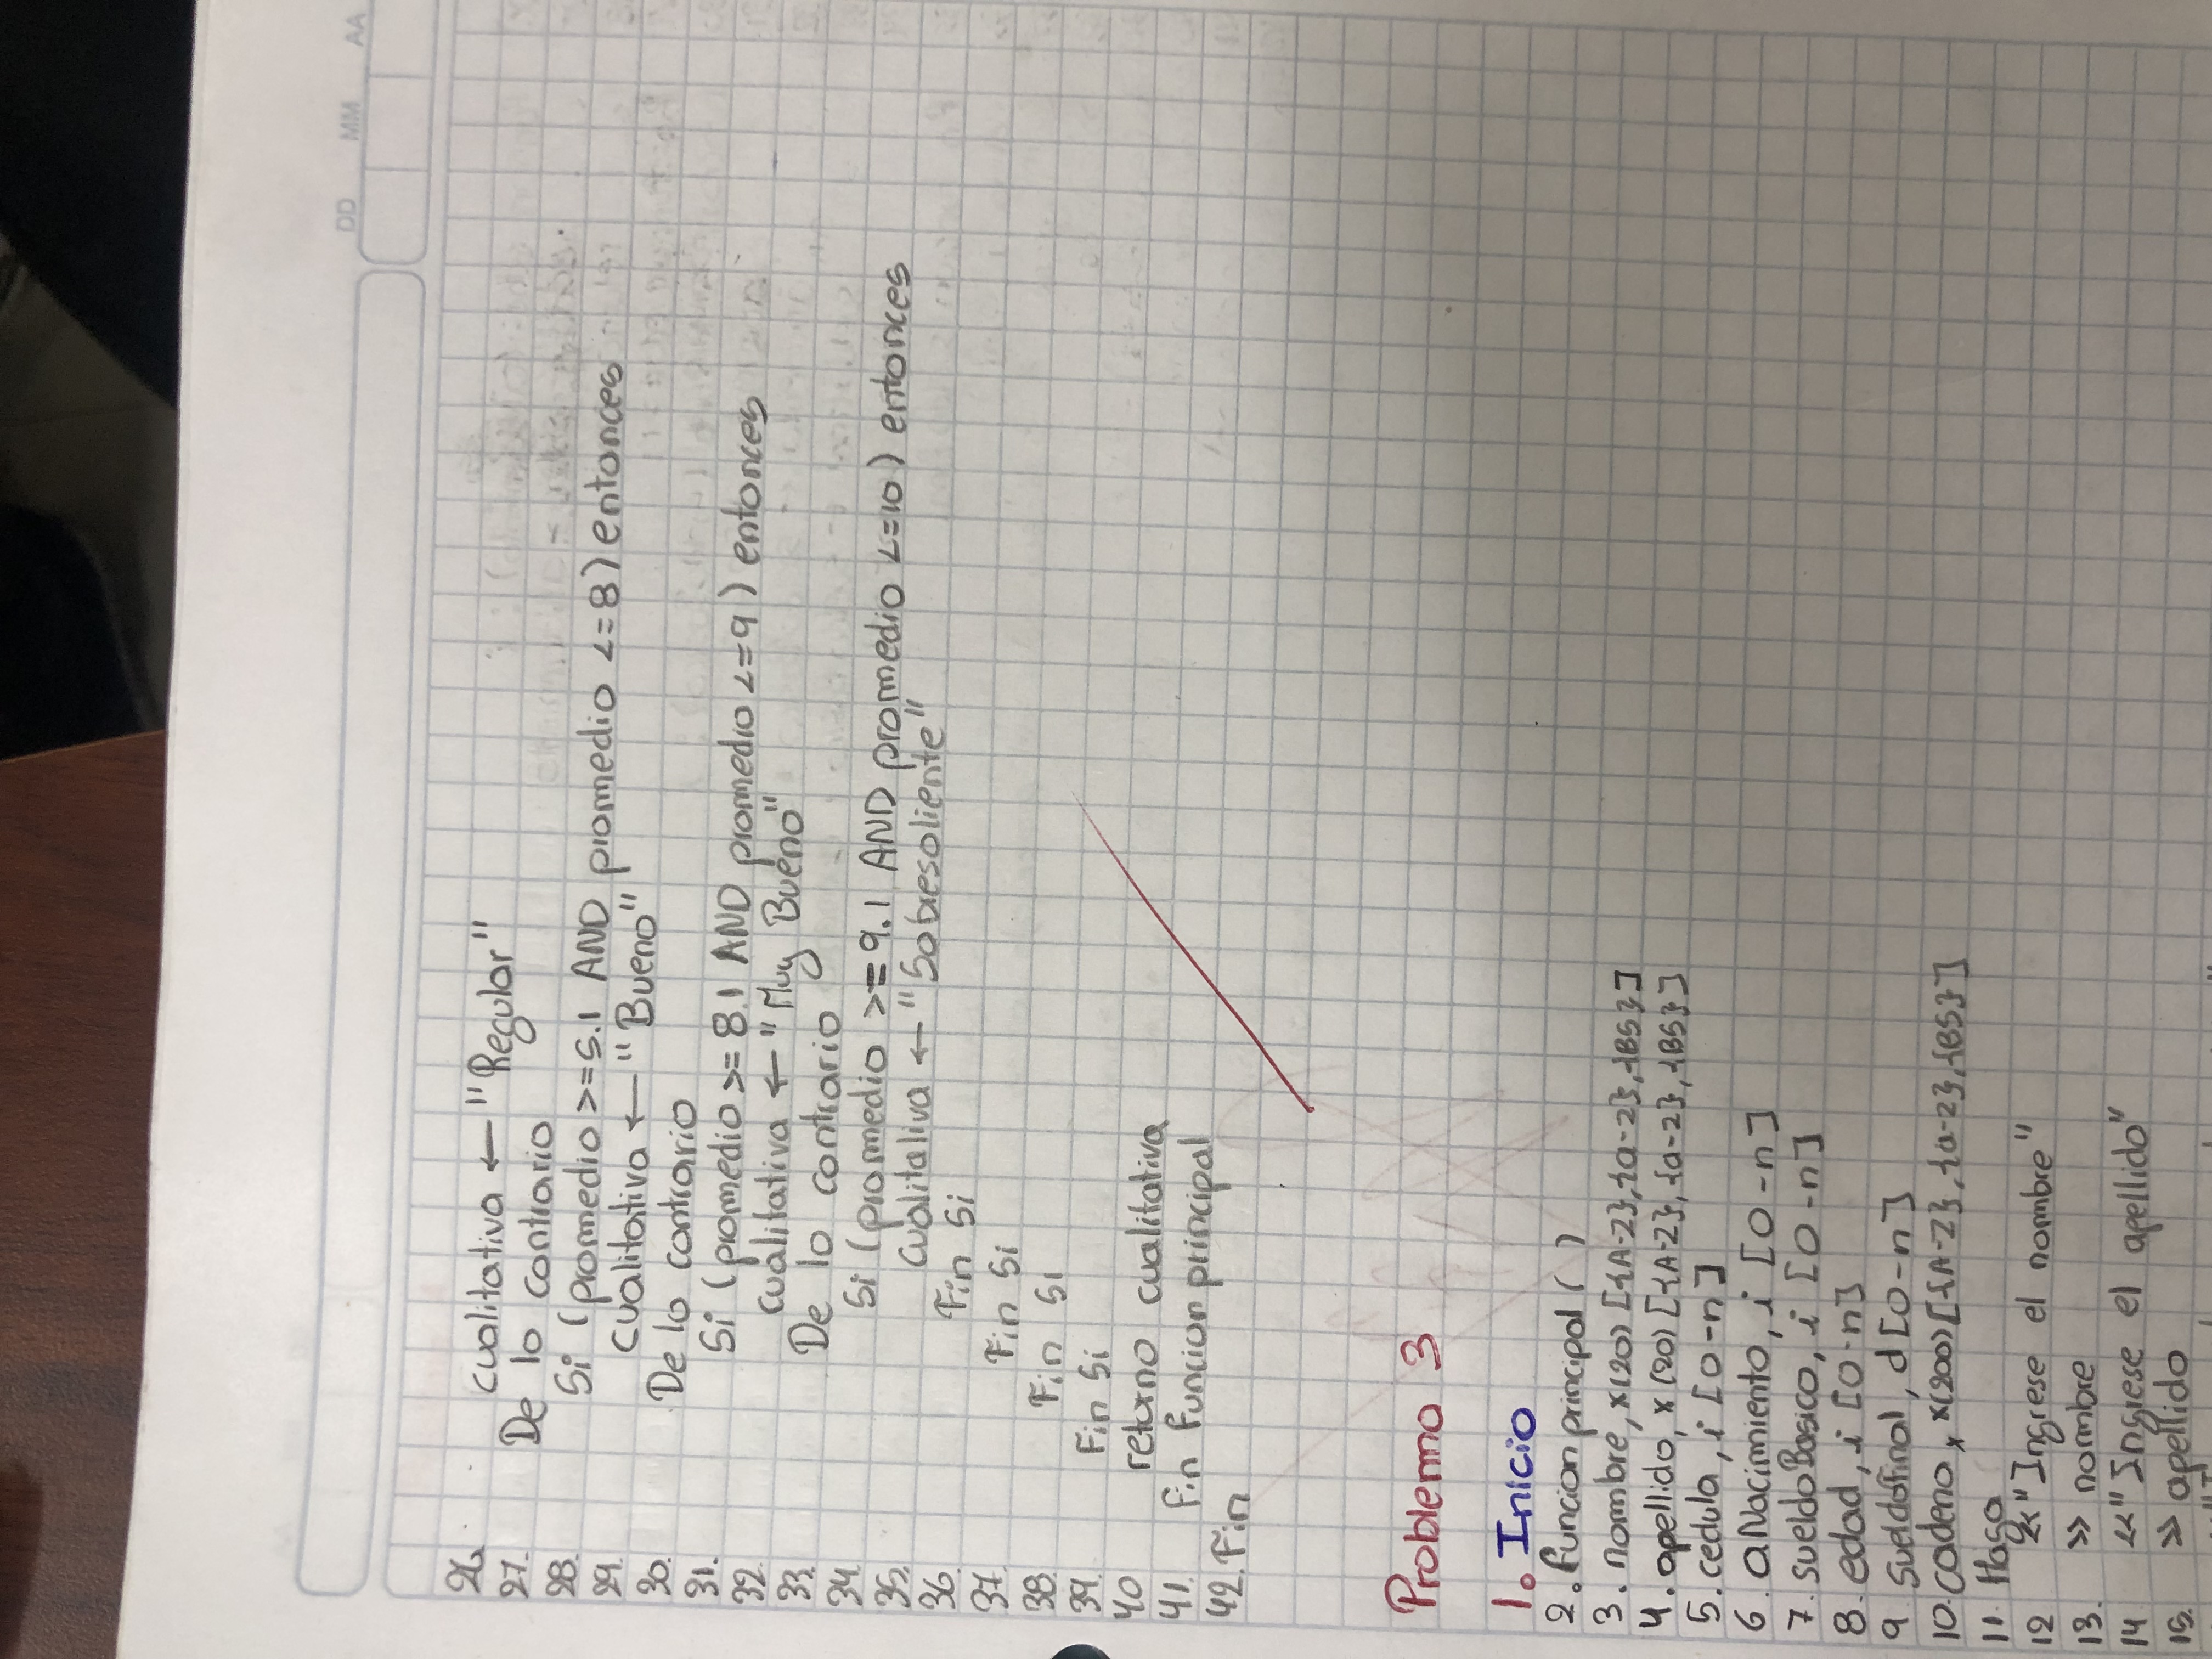 DD MM AA
26. cualitativa ← "Regular"
27. De lo contrario
28. Si (promedio >=5.1 AND promedio <=8) entonces
29. cualitativa ← "Bueno"
30. De lo contrario
31. Si (promedio >= 8.1 AND promedio <=9) entonces
32. cualitativa ← "Muy Bueno"
33. De lo contrario
34 Si (promedio >= 9.1 AND promedio <=10) entonces
35. cualitativa ← "Sobresaliente"
36. Fin Si
37. Fin Si
38. Fin Si
39. Fin Si
40 retorno cualitativa
41. fin funcion principal
42. Fin
Problema 3
1. Inicio
2. funcion principal ( )
3. nombre, x(20) [{A-Z},{a-z},{BS}]
4. apellido, x (20) [{A-Z}, {a-z}, {BS}]
5. cedula, i [0-n]
6. aNacimiento, i [0-n]
7. sueldoBasico, i [0-n]
8. edad, i [0-n]
9 sueldoFinal, d[0-n]
10. cadena, x(200) [{A-Z}, {a-z}, {BS}]
11. Haga
12 <<"Ingrese el nombre"
13. >> nombre
14 <<"Ingrese el apellido"
15. >> apellido